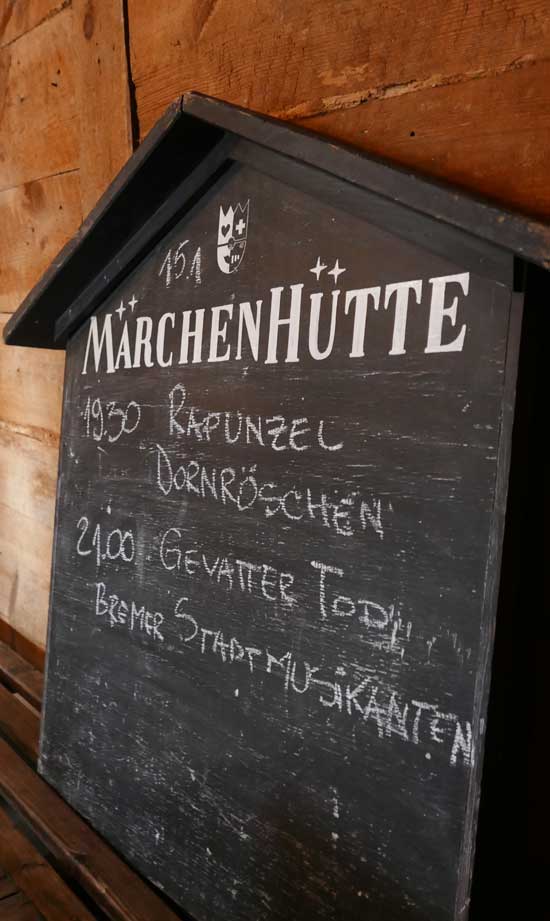 15.1
MÄRCHENHÜTTE
1930 RAPUNZEL
DORNRÖSCHEN
21.00 GEVATTER TOD
BREMER STADTMUSIKANTEN